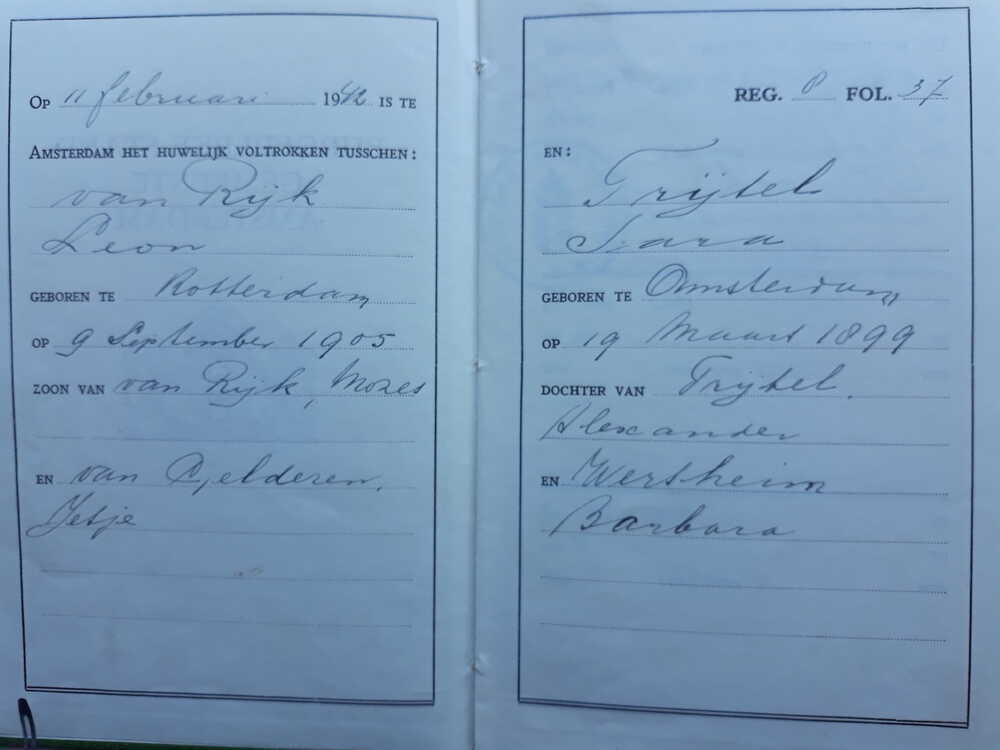 Op 11 februari 1942 is te
Amsterdam het huwelijk voltrokken tusschen:
van Rijk
Leon
geboren te Rotterdam
op 9 September 1905
zoon van van Rijk, Mozes
en van Gelderen,
Jetje
Reg. P Fol. 37
en:
Trijtel
Sara
geboren te Amsterdam
op 19 Maart 1899
dochter van Trijtel,
Alexander
en Wertheim
Barbara